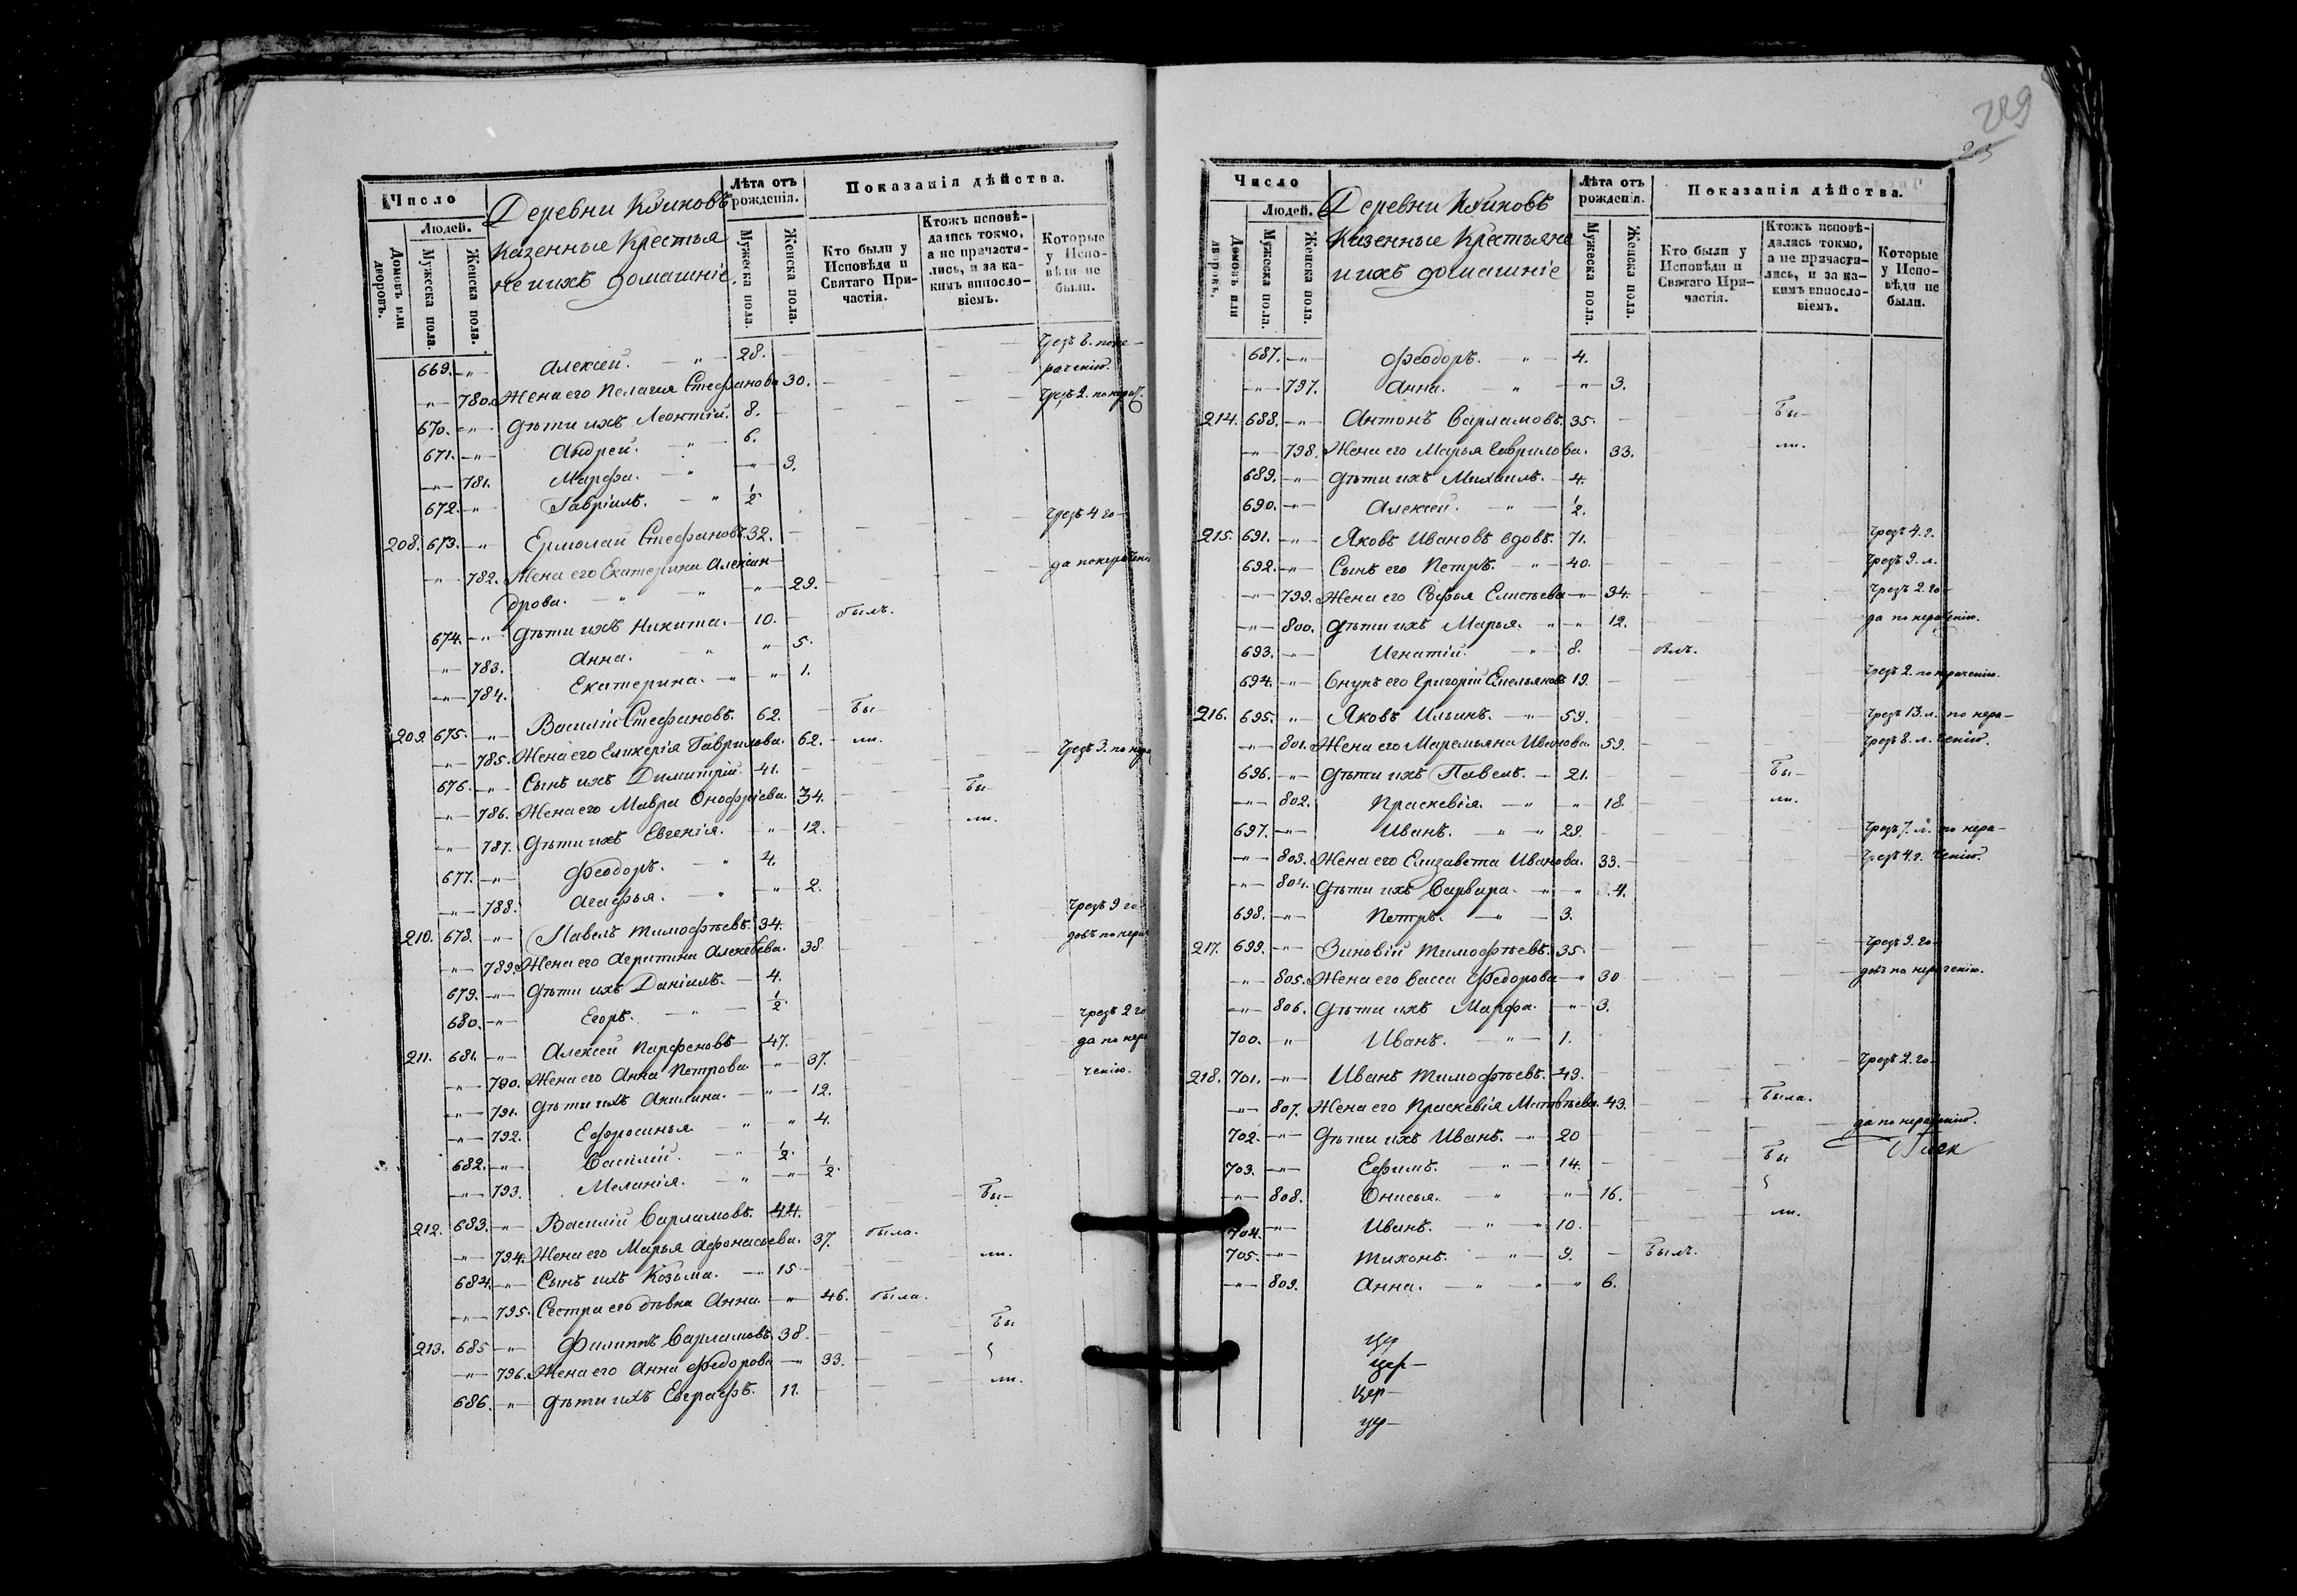 Число
Людей.
Домовъ или дворовъ.
Мужеска пола.
Женска пола.
Деревни
казенные Крестья
не и ихъ домашніе.
Лѣта отъ рожденія.
Мужеска пола.
Женска пола.
Показанія дѣйства.
Кто были у Исповѣди и Святаго Причастія.
Ктожъ исповѣдались токмо, а не причастились, и за какимъ винословіемъ.
Которые у Исповѣди не были.
669. —"— Алексѣй. — " — 28. — чрезъ 6. по не-
раченію.
—"— 780. Жена его Пелагия Стефанова 30. — чрезъ 2. по нерач.
670. —"— Дѣти ихъ Леонтій. 8.
671. —"— Андрей. — " 6.
—"— 781. Марфа. — " —"— 3.
672. —"— Гавріилъ. — " 1/2
208. 673. —"— Ермолай Стефановъ. 32. — чрезъ 4 го-
—"— 782. Жена его Екатерина Алексан-
дрова. — " — " —"— 29. — да по нерачені
674. —"— Дѣти ихъ Никита. — 10. — былъ.
—"— 783. Анна. — " " 5.
—"— 784. Екатерина. —"— " 1.
209. 675. —"— Василій Стефановъ. 62. — Бы-
—"— 785. Жена его Гликерія Гаврилова. 62. — ли.
676. —"— Сынъ ихъ Димитрій. 41. — чрезъ 3. по нера
—"— 786. Жена его Мавра Онофріева. 34. — Бы
—"— 787. Дѣти ихъ Евгенія. —"— 12. — ли.
677. —"— Феодоръ. — " 4.
—"— 788. Агафья. — " —"— 2.
210. 678. —"— Павелъ Тимофѣевъ. 34. — чрезъ 9 го-
—"— 789. Жена его Агрипина Алексѣева. 38 — довъ по нера
679. —"— Дѣти ихъ Даніилъ. — 4.
680. —"— Егоръ. — " — 1/2
211. 681. —"— Алексѣй Парфеновъ — 47. — чрезъ 2 го
—"— 790. Жена его Анна Петрова. —"— 37. — да по нера
—"— 791. Дѣти ихъ Акилина. —"— 12. — ченію.
—"— 792. Ефросинья — " " 4.
682. —"— Василій. — " 1/2.
—"— 793. Меланія. — " —"— 1/2
212. 683. —"— Василій Варламовъ. 44. — Бы-
—"— 794. Жена его Марья Афонасьева. 37. была.
684. —"— Сынъ ихъ Козьма. —"— 15 — ли.
—"— 795. Сестра его дѣвка Анна. —"— 46. была.
213. 685 —"— Филиппъ Варламовъ. 38. — Бы
—"— 796. Жена его Анна Федорова —"— 33.
686. —"— Дѣти ихъ Евграфъ. 11. — ли.
289
Число
Людей.
Домовъ или дворовъ.
Мужеска пола.
Женска пола.
Деревни
Казенные Крестьяне
и ихъ домашніе
Лѣта отъ рожденія.
Мужеска пола.
Женска пола.
Показанія дѣйства.
Кто были у Исповѣди и Святаго Причастія.
Ктожъ исповѣдались токмо, а не причастились, и за какимъ винословіемъ.
Которые у Исповѣди не были.
687. —"— Феодоръ. — " — 4.
—"— 797. Анна. — " —"— 3.
214. 688. —"— Антонъ Варламовъ. 35. — Бы-
—"— 798. Жена его Марья Гаврилова. 33. — ли.
689. —"— Дѣти ихъ Михаилъ. — 4.
690. —"— Алексѣй. — " — 1/2.
215. 691. —"— Яковъ Ивановъ вдовъ. 71. чрезъ 4. г.
692. —"— Сынъ его Петръ. —"— 40. — чрезъ 9. л.
—"— 799. Жена его Софья Елисѣева —"— 34. — чрезъ 2. го-
—"— 800. Дѣти ихъ Марья. " —"— 12. — да по нераченію.
693. —"— Игнатій. — " — 8. — былъ.
694. —"— Внукъ его Григорій Емельяновъ 19. — чрезъ 2. по нераченію.
216. 695. "— Яковъ Ильинъ. —"— 59. — чрезъ 13. л. по нера-
—"— 801. Жена его Маремьяна Иванова. 59. — чрезъ 8. л. ченію.
696. —"— Дѣти ихъ Павелъ. — 21. — Бы-
—"— 802. Праскевія. —"— " 18. — ли.
697. —"— Иванъ. — " —"— 29. — чрезъ 7. л. по нера-
—"— 803. Жена его Елизавета Иванова. 33. — чрезъ 4. г. ченію.
—"— 804. Дѣти ихъ Варвара. —"— " 4.
698. —"— Петръ. —"— 3.
217. 699. —"— Зиновій Тимофѣевъ. 35. — чрезъ 9. го-
—"— 805. Жена его Васса Федорова —"— 30 — довъ по нераченію.
—"— 806. Дѣти ихъ Марфа. —"— 3.
700. —"— Иванъ. — " — 1.
218. 701. —"— Иванъ Тимофѣевъ. 49. — чрезъ 2. го-
—"— 807. Жена его Праскевія Матвѣева. 43. — Была.
702. —"— Дѣти ихъ Иванъ. —"— 20 — да по нераченію.
703. —"— Ефимъ. — " — 14. — Бы
—"— 808. Онисья. — " —"— 16.
704. —"— Иванъ. — " —"— 10. — ли.
705. —"— Тихонъ. — " — 9. — Былъ.
—"— 809. Анна. — " —"— 6.